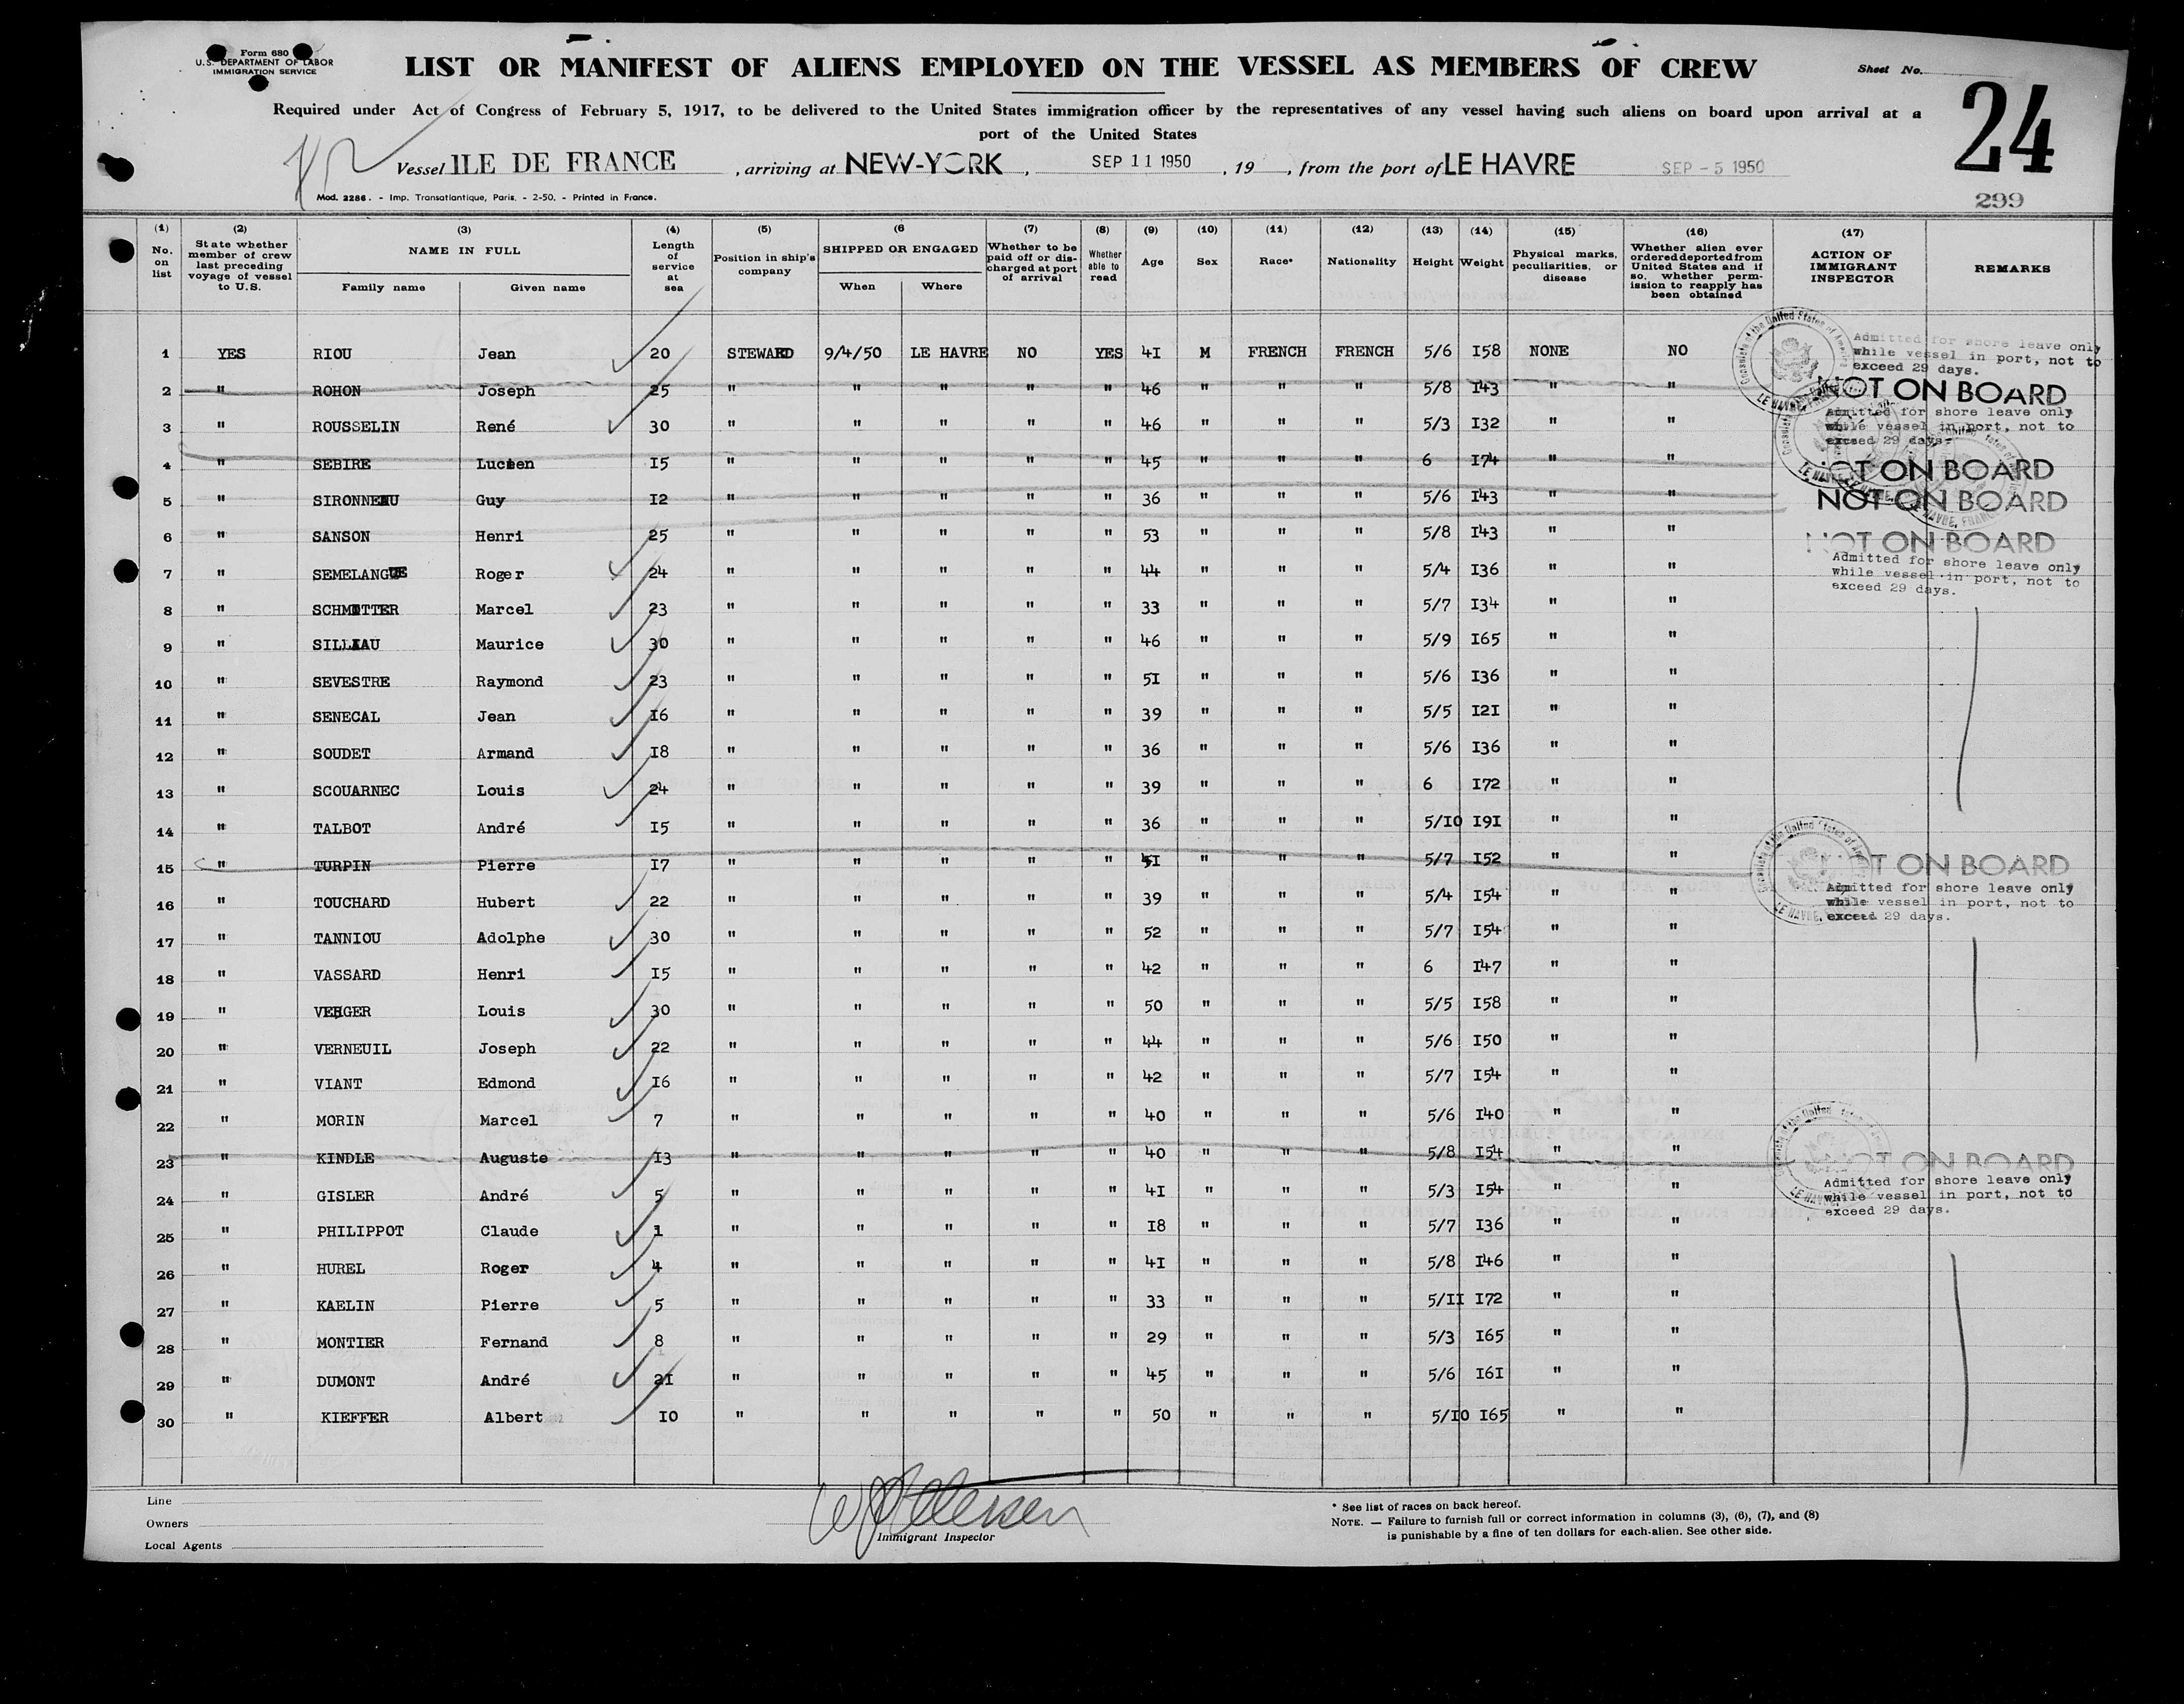 Form 680
U.S. DEPARTMENT OF LABOR
IMMIGRATION SERVICE
LIST OR MANIFEST OF ALIENS EMPLOYED ON THE VESSEL AS MEMBERS OF CREW
Sheet No.
24
299
Required under Act of Congress of February 5, 1917, to be delivered to the United States immigration officer by the representatives of any vessel having such aliens on board upon arrival at a
port of the United States
Vessel ILE DE FRANCE, arriving at NEW-YORK, SEP 11 1950, 19 , from the port of LE HAVRE SEP - 5 1950
Mod. 2286. - Imp. Transatlantique, Paris. - 2-50. - Printed in France.
(1) No. on list
(2) State whether member of crew last preceding voyage of vessel to U.S.
(3) NAME IN FULL Family name Given name
(4) Length of service at sea
(5) Position in ship's company
(6 SHIPPED OR ENGAGED When Where
(7) Whether to be paid off or discharged at port of arrival
(8) Whether able to read
(9) Age
(10) Sex
(11) Race*
(12) Nationality
(13) Height
(14) Weight
(15) Physical marks, peculiarities, or disease
(16) Whether alien ever ordered deported from United States and if so, whether permission to reapply has been obtained
(17) ACTION OF IMMIGRANT INSPECTOR
REMARKS
1 YES RIOU Jean 20 STEWARD 9/4/50 LE HAVRE NO YES 41 M FRENCH FRENCH 5/6 158 NONE NO Admitted for shore leave only while vessel in port, not to exceed 29 days.
2 " ROHON Joseph 25 " " " " " 46 " " " 5/8 143 " " NOT ON BOARD
3 " ROUSSELIN René 30 " " " " " 46 " " " 5/3 132 " " Admitted for shore leave only while vessel in port, not to exceed 29 days.
4 " SEBIRE Lucien 15 " " " " " 45 " " " 6 174 " " NOT ON BOARD
5 " SIRONNEAU Guy 12 " " " " " 36 " " " 5/6 143 " " NOT ON BOARD
6 " SANSON Henri 25 " " " " " 53 " " " 5/8 143 " " NOT ON BOARD
7 " SEMELANGUE Roger 24 " " " " " 44 " " " 5/4 136 " " Admitted for shore leave only while vessel in port, not to exceed 29 days.
8 " SCHMITTER Marcel 23 " " " " " 33 " " " 5/7 134 " "
9 " SILLIAU Maurice 30 " " " " " 46 " " " 5/9 165 " "
10 " SEVESTRE Raymond 23 " " " " " 51 " " " 5/6 136 " "
11 " SENECAL Jean 16 " " " " " 39 " " " 5/5 121 " "
12 " SOUDET Armand 18 " " " " " 36 " " " 5/6 136 " "
13 " SCOUARNEC Louis 24 " " " " " 39 " " " 6 172 " "
14 " TALBOT André 15 " " " " " 36 " " " 5/10 191 " "
15 " TURPIN Pierre 17 " " " " " 51 " " " 5/7 152 " " NOT ON BOARD
16 " TOUCHARD Hubert 22 " " " " " 39 " " " 5/4 154 " " Admitted for shore leave only while vessel in port, not to exceed 29 days.
17 " TANNIOU Adolphe 30 " " " " " 52 " " " 5/7 154 " "
18 " VASSARD Henri 15 " " " " " 42 " " " 6 147 " "
19 " VERGER Louis 30 " " " " " 50 " " " 5/5 158 " "
20 " VERNEUIL Joseph 22 " " " " " 44 " " " 5/6 150 " "
21 " VIANT Edmond 16 " " " " " 42 " " " 5/7 154 " "
22 " MORIN Marcel 7 " " " " " 40 " " " 5/6 140 " "
23 " KINDLE Auguste 13 " " " " " 40 " " " 5/8 154 " " NOT ON BOARD
24 " GISLER André 5 " " " " " 41 " " " 5/3 154 " " Admitted for shore leave only while vessel in port, not to exceed 29 days.
25 " PHILIPPOT Claude 1 " " " " " 18 " " " 5/7 136 " "
26 " HUREL Roger 4 " " " " " 41 " " " 5/8 146 " "
27 " KAELIN Pierre 5 " " " " " 33 " " " 5/11 172 " "
28 " MONTIER Fernand 8 " " " " " 29 " " " 5/3 165 " "
29 " DUMONT André 21 " " " " " 45 " " " 5/6 161 " "
30 " KIEFFER Albert 10 " " " " " 50 " " " 5/10 165 " "
Line
Owners
Local Agents
Immigrant Inspector
* See list of races on back hereof.
NOTE. — Failure to furnish full or correct information in columns (3), (6), (7), and (8)
is punishable by a fine of ten dollars for each alien. See other side.